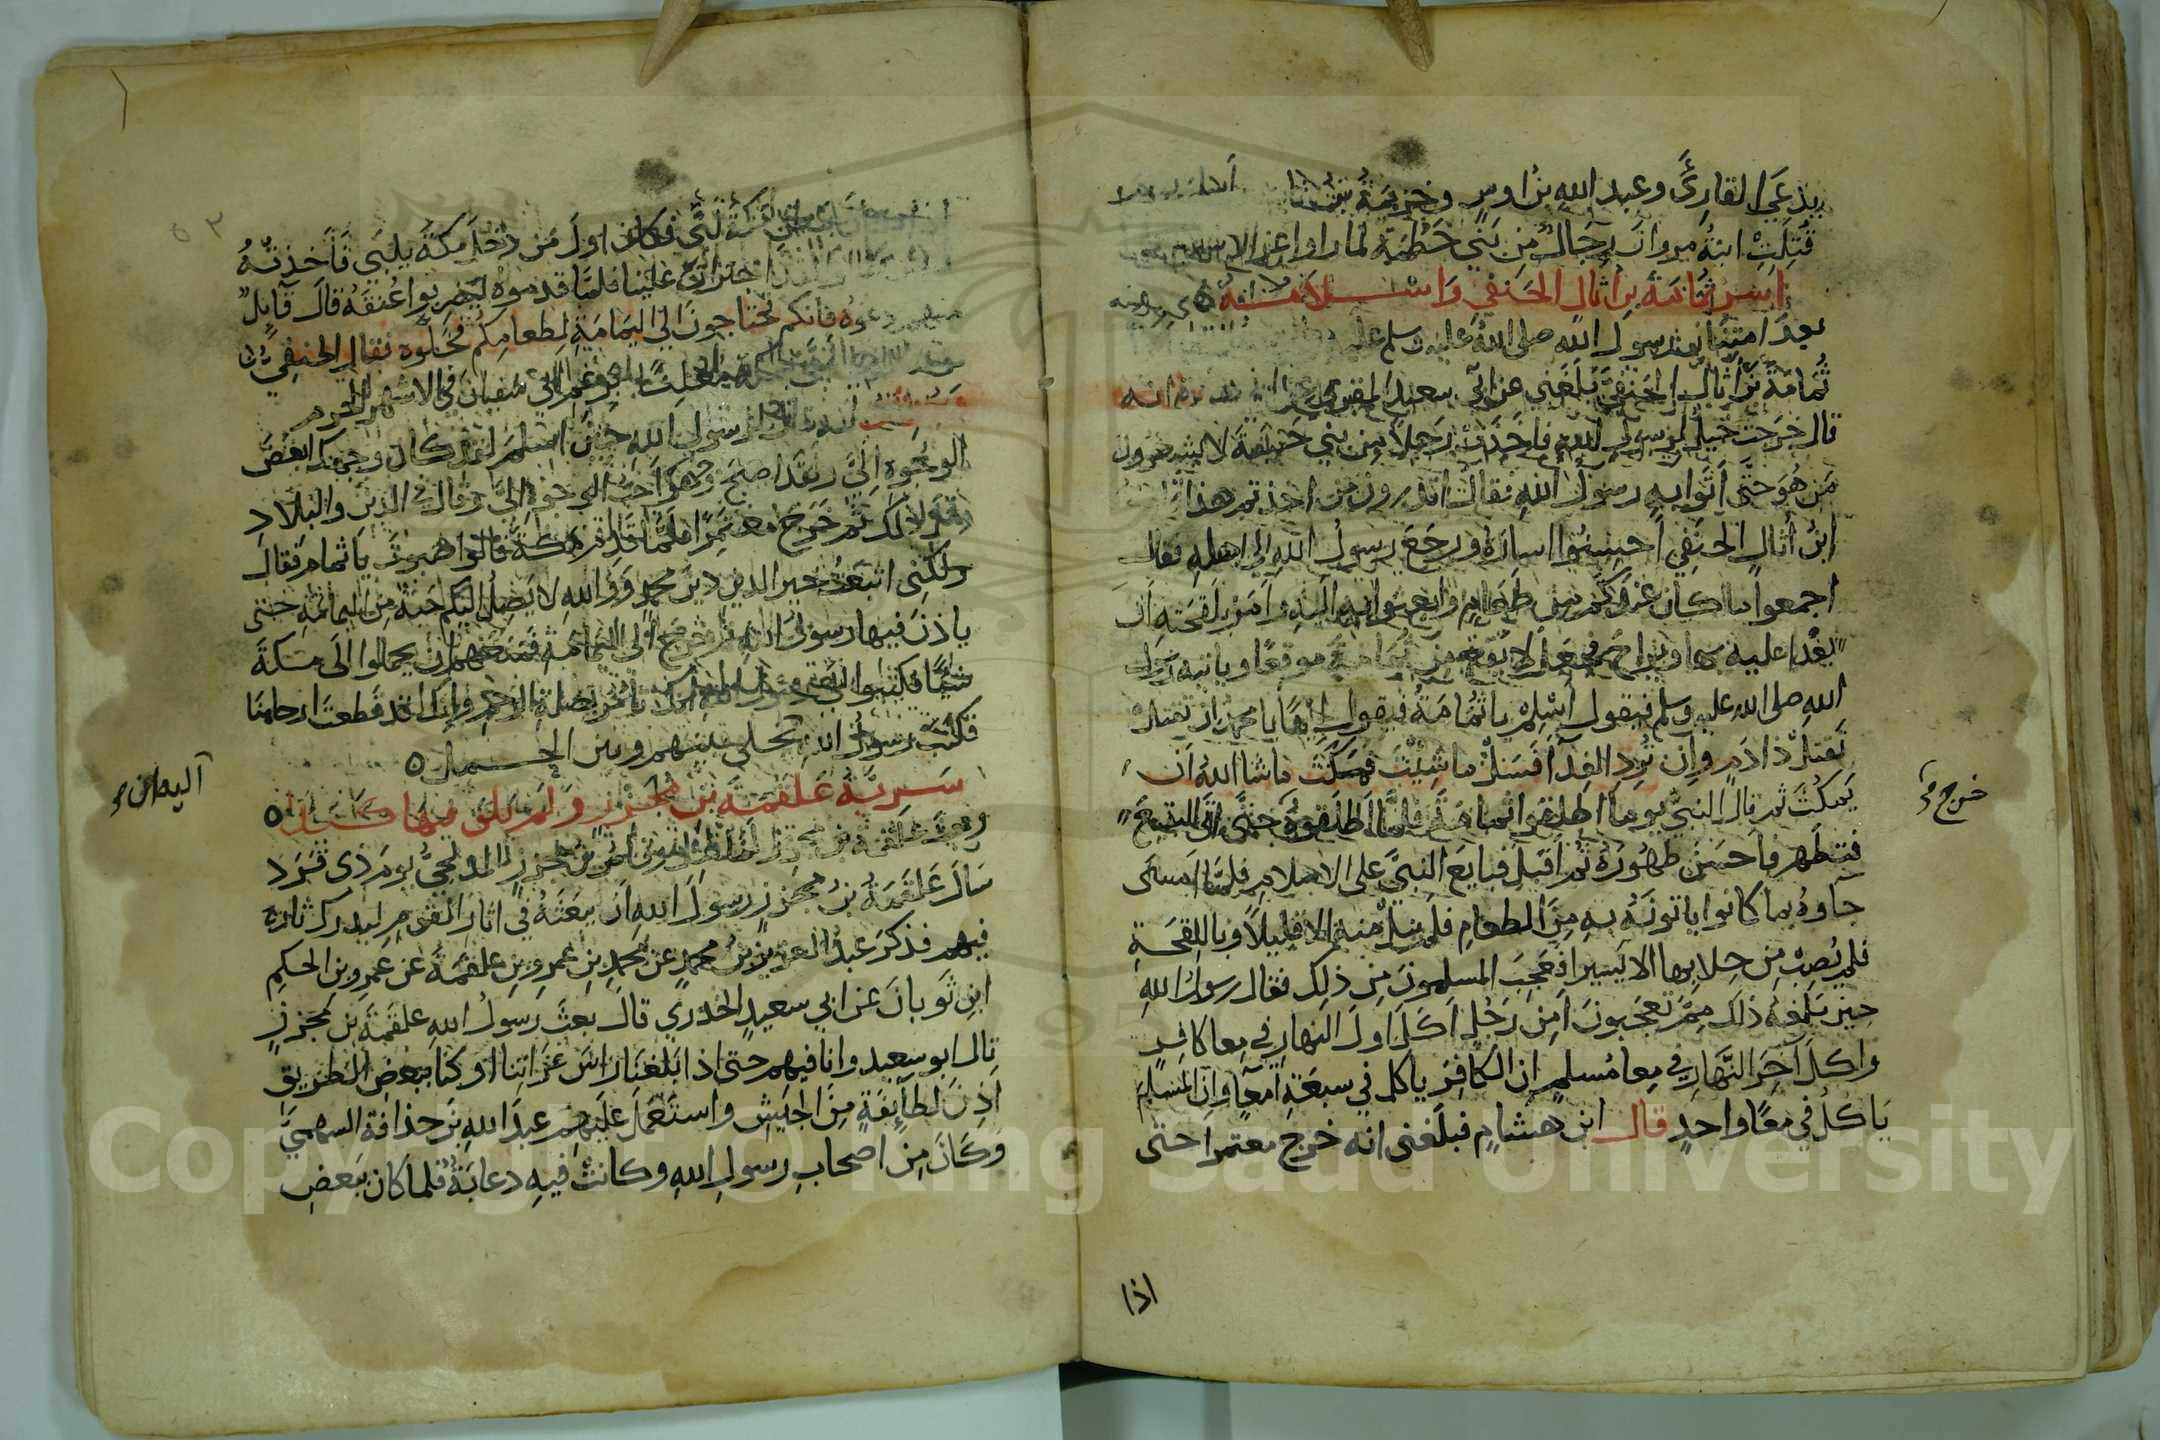 يدعى القارئ وعبد الله بن اوس وخزيمة بن ثابت
قتلت ابنة مروان رجال من بني خطمة لما راوا عز الاسلام
اسر ثمامة بن اثال الحنفي واسلامه
بعد امتناعه رسول الله صلى الله عليه وسلم
ثمامة بن اثال الحنفي بلغني عن ابي سعيد المقبري عن ابي هريرة انه
قال خرجت خيل لرسول الله فاخذت رجلا من بني حنيفة لا يشعرون
من هو حتى اتوا به رسول الله فقال اتدرون من اخذتم هذا ثمامة
ابن أثال الحنفي احسنوا اساره ورجع رسول الله الى اهله فقال
اجمعوا ما كان عندكم من طعام وابعثوا به اليه وامر بلقحته ان
يغدا عليه بها ويراح فجعل لا يقع من ثمامة موقعا وياتيه رسول
الله صلى الله عليه وسلم فيقول اسلم يا ثمامة فيقول ايها يا محمد ان تقتل
تقتل ذا دم وان ترد الفدآ فسل ما شيت فمكث ما شا الله ان
يمكث ثم قال النبي يوما اطلقوا ثمامة فلما اطلقوه حتى اتى البقيع
فتطهر فاحسن طهوره ثم اقبل فبايع النبي على الاسلام فلما امسى
جاوه بما كانوا ياتونه به من الطعام فلم ينل منه الا قليلا وباللقحة
فلم يصب من حلابها الا يسيرا فعجب المسلمون من ذلك فقال رسول الله
حين بلغه ذلك مم تعجبون امن رجل اكل اول النهار في معا كافر
واكل آخر النهار في معا مسلم ان الكافر ياكل في سبعة امعآ وان المسلم
ياكل في معا واحد قال ابن هشام فبلغني انه خرج معتمرا حتى
خرج
اذا
٥٢
مكة لبى فكان اول من دخل مكة يلبي فأخذته
اجترات علينا فلما قدموه ليضربوا عنقه قال قآيل
منهم دعوه فانكم تحتاجون الى اليمامة لطعامكم فخلوه فقال الحنفي
برغم ابي سفيان في الاشهر الحرم
لرسول الله حين اسلم لقد كان وجهك ابغض
الوجوه الي ولقد اصبح وهو احب الوجوه الي وقال في الدين والبلاد
مثل ذلك ثم خرج معتمرا فلما قدم مكة قالوا صبوت يا ثمام فقال
ولكني اتبعت خير الدين دين محمد ووالله لا يصل اليكم حبة من اليمامة حتى
ياذن فيها رسول الله ثم خرج الى اليمامة فمنعهم ان يحملوا الى مكة
شيا فكتبوا الى رسول الله انك تامر بصلة الرحم وانك قد قطعت ارحامنا
فكتب رسول الله يخلي بينهم وبين الحمل ٥
سرية علقمة بن مجزز ولم يلق فيها كيدا ٥
وبعث علقمة بن مجزز لما قتل وقاص بن مجزز المدلجي يوم ذي قرد
سال علقمة بن مجزز رسول الله ان يبعثه في اثار القوم ليدرك ثاره
فيهم فذكر عبد العزيز بن محمد عن محمد بن عمرو بن علقمة عن عمرو بن الحكم
ابن ثوبان عن ابي سعيد الخدري قال بعث رسول الله علقمة بن مجزز
قال ابو سعيد وانا فيهم حتى اذا بلغنا راس غزاتنا او كنا ببعض الطريق
اذن لطآيفة من الجيش واستعمل عليهم عبد الله بن حذافة السهمي
وكان من اصحاب رسول الله وكانت فيه دعابة فلما كان ببعض
Copyright © King Saud University